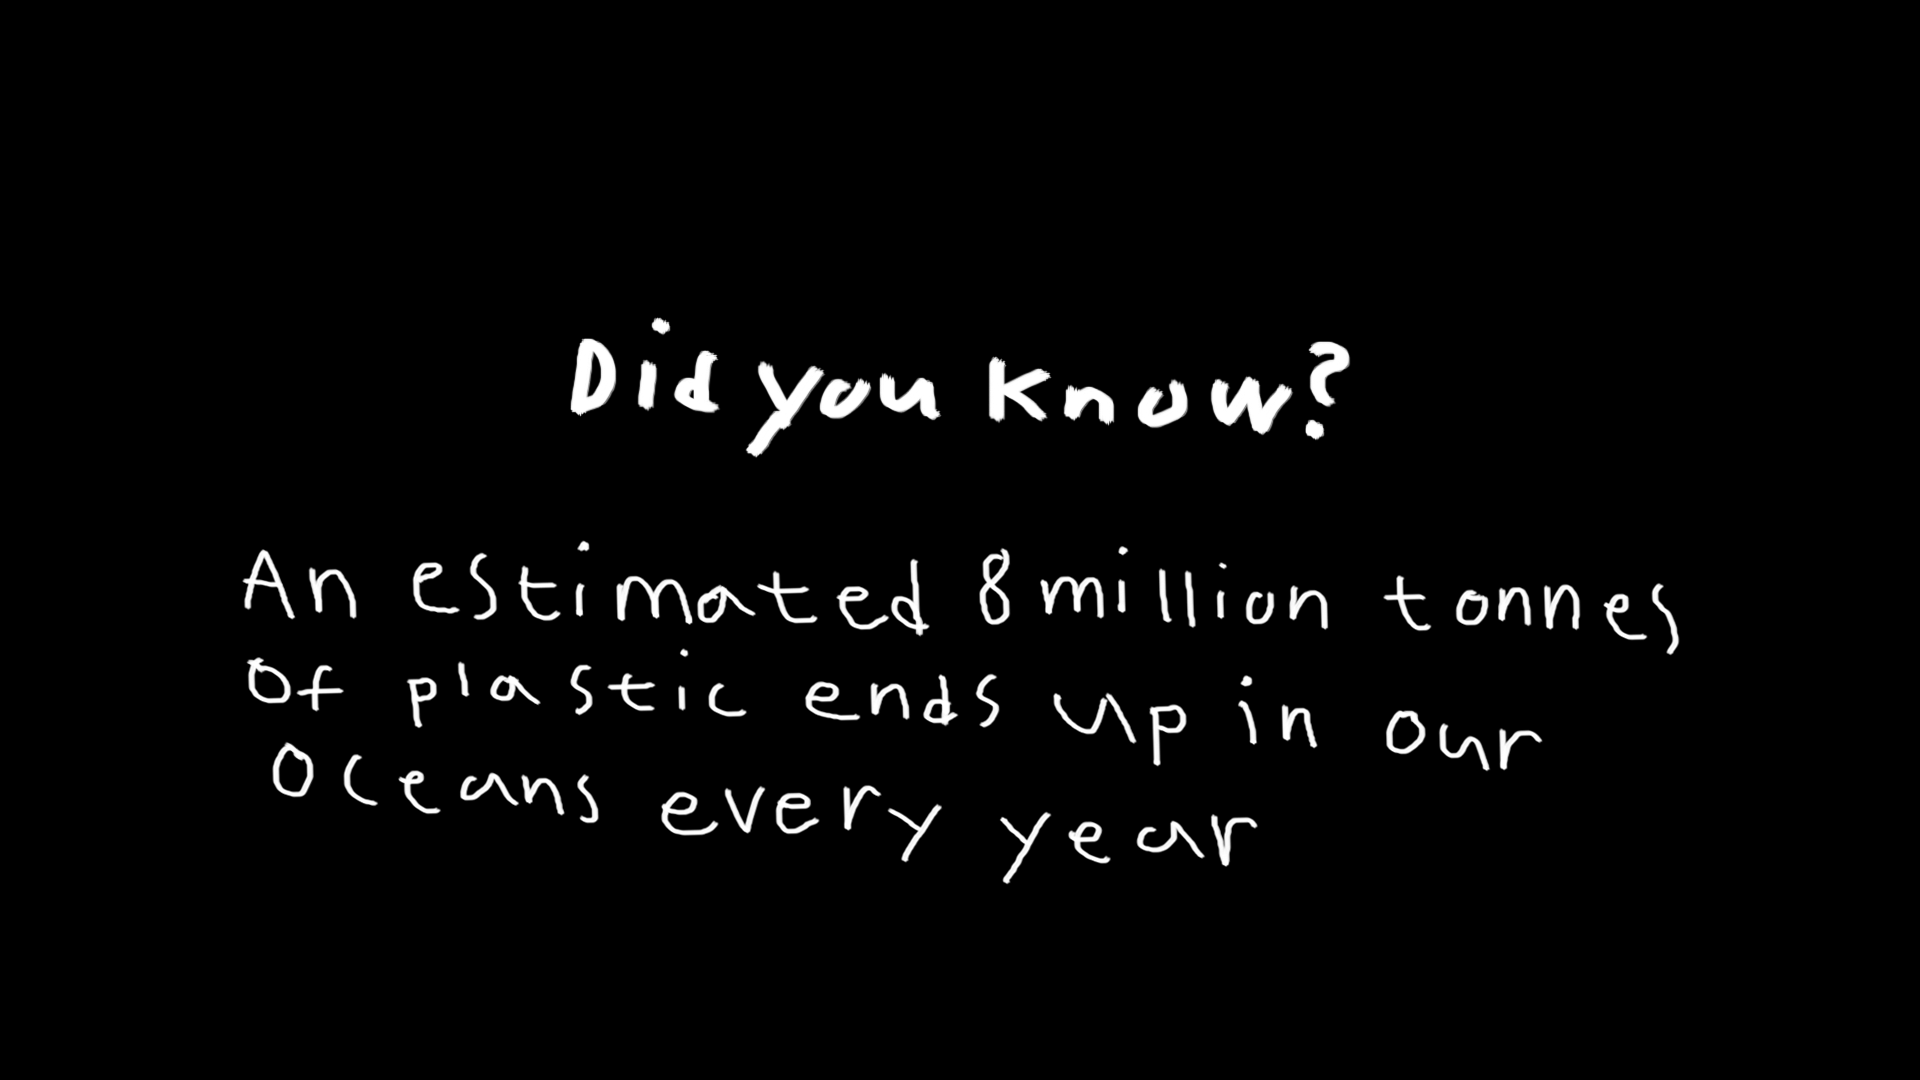 Did you know?
An estimated 8 million tonnes
of plastic ends up in our
oceans every year